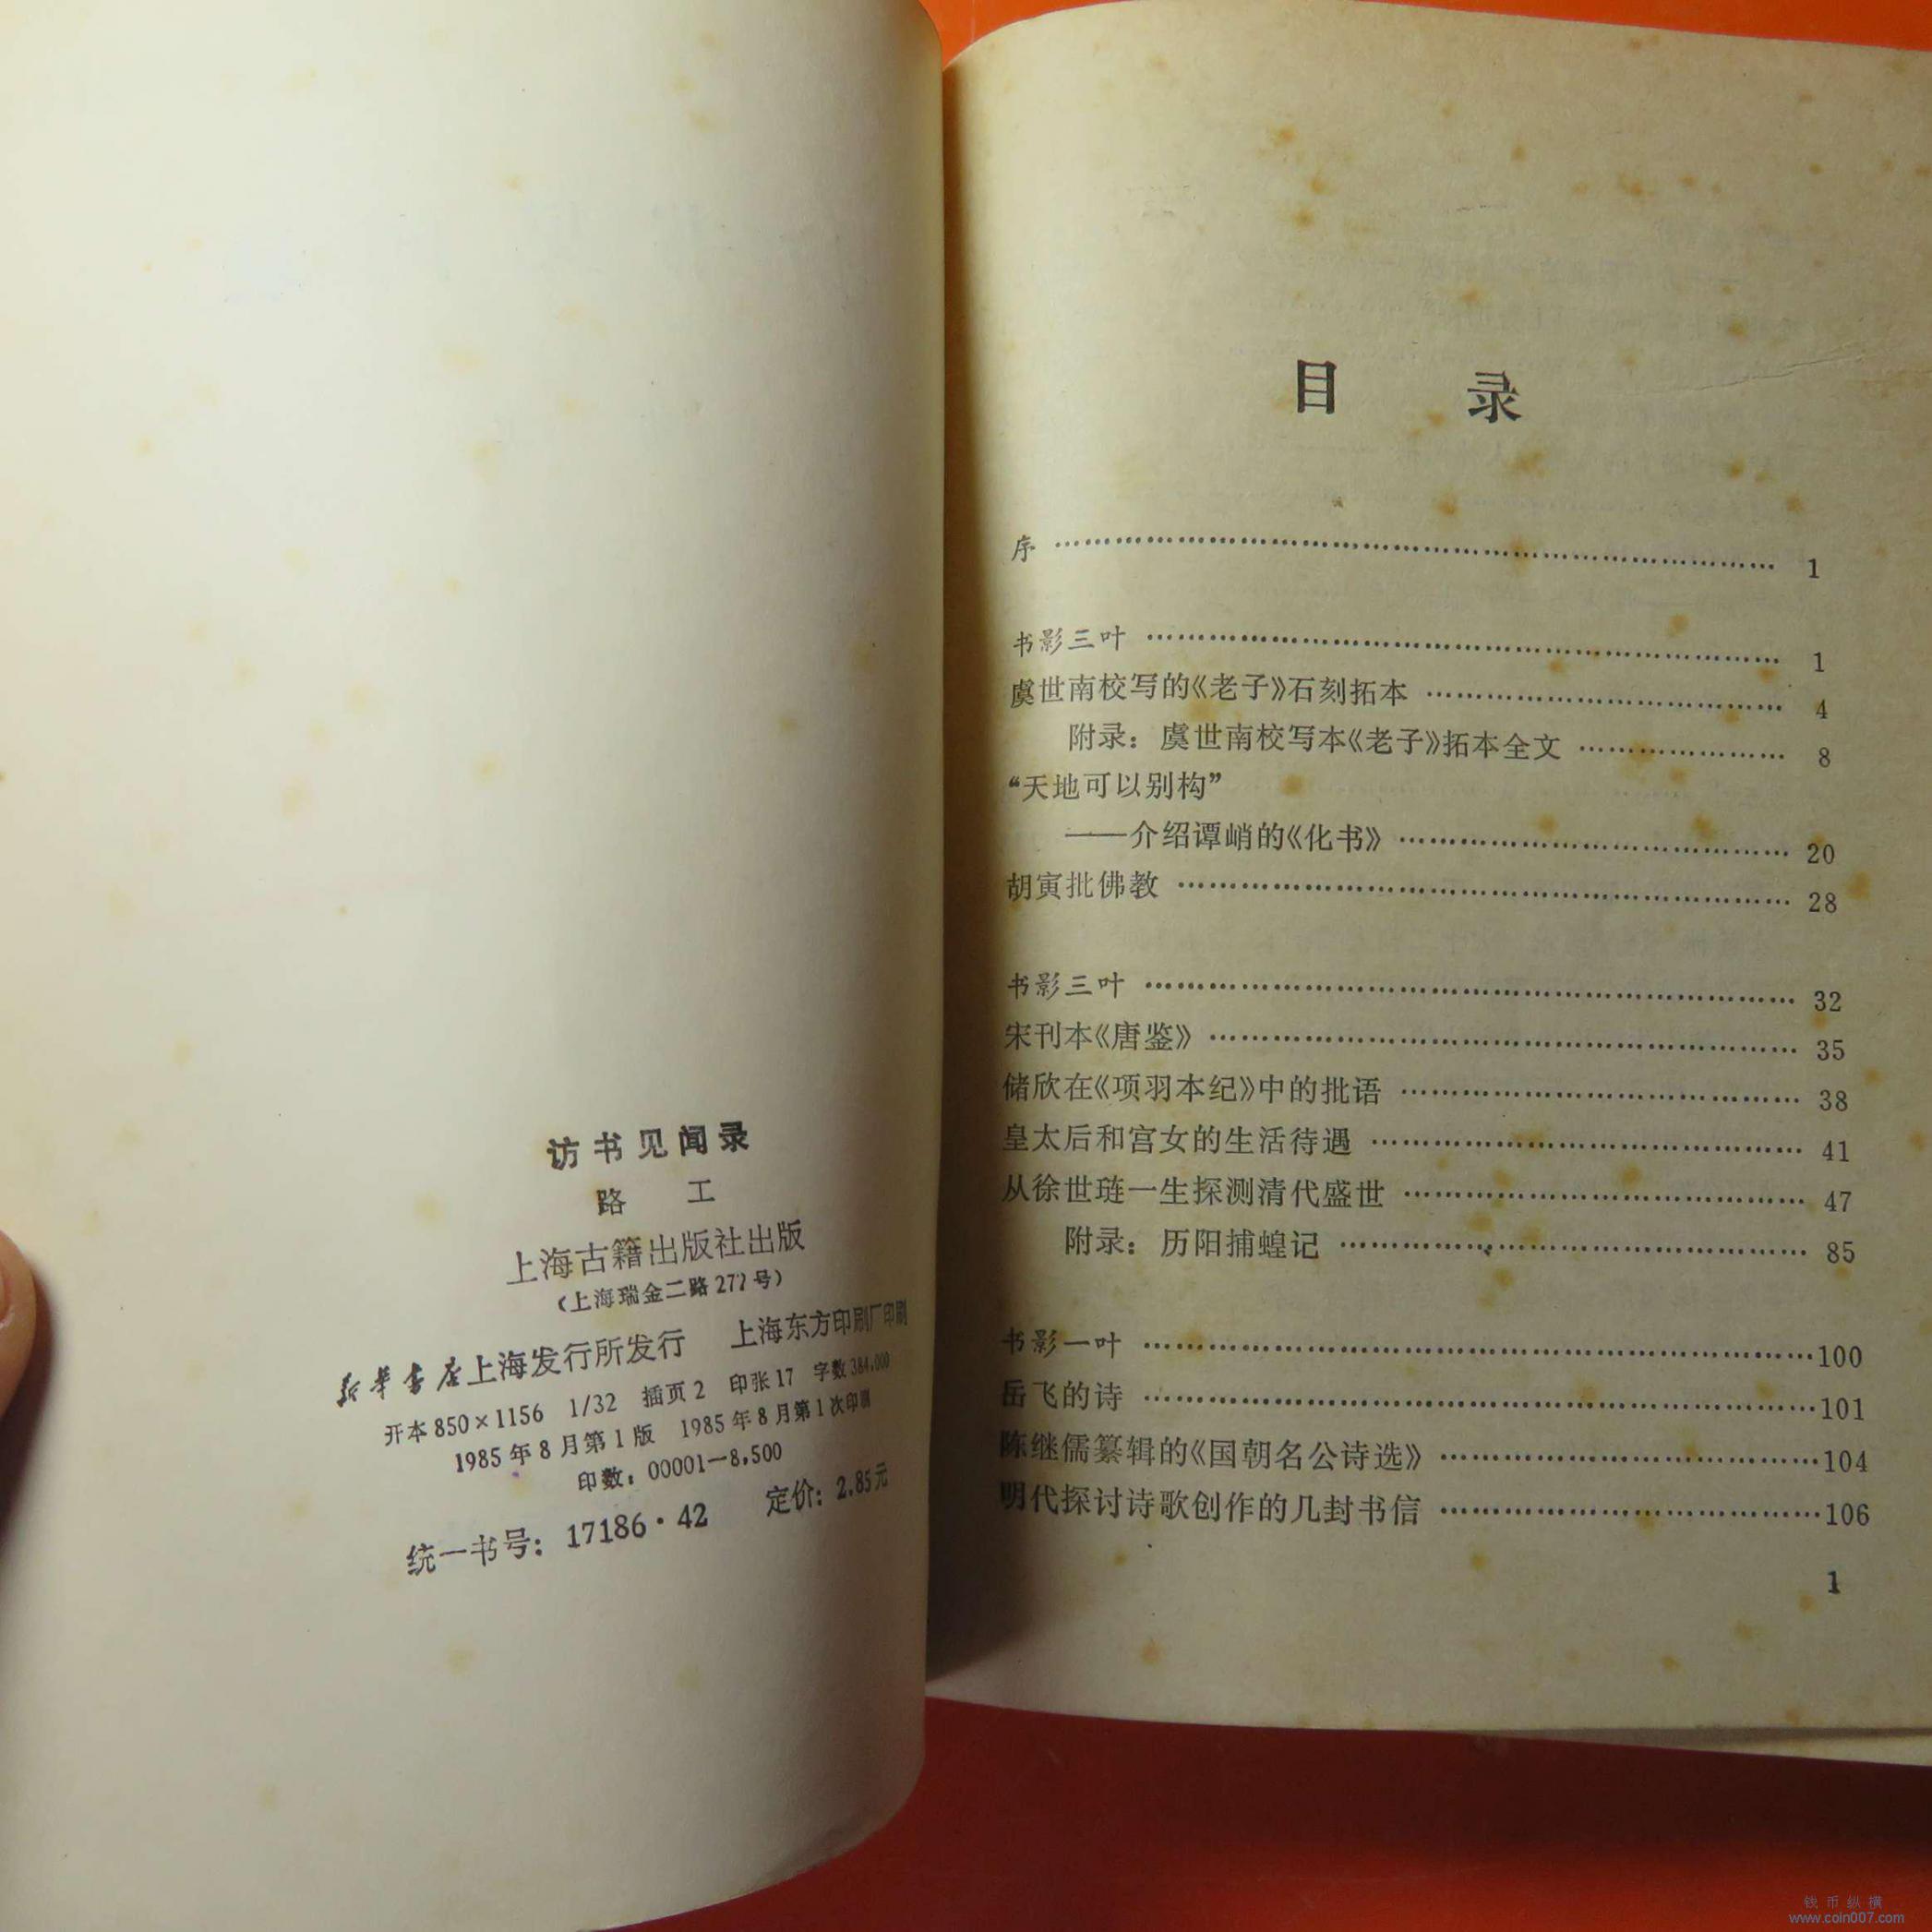 访书见闻录
路 工
上海古籍出版社出版
(上海瑞金二路272号)
新华书店上海发行所发行 上海东方印刷厂印刷
开本850×1156 1/32 插页2 印张17 字数384,000
1985年8月第1版 1985年8月第1次印刷
印数：00001—8,500
统一书号：17186·42 定价：2.85元
目 录
序 …… 1
书影三叶 …… 1
虞世南校写的《老子》石刻拓本 …… 4
附录：虞世南校写本《老子》拓本全文 …… 8
“天地可以别构”
——介绍谭峭的《化书》 …… 20
胡寅批佛教 …… 28
书影三叶 …… 32
宋刊本《唐鉴》 …… 35
储欣在《项羽本纪》中的批语 …… 38
皇太后和宫女的生活待遇 …… 41
从徐世琏一生探测清代盛世 …… 47
附录：历阳捕蝗记 …… 85
书影一叶 …… 100
岳飞的诗 …… 101
陈继儒纂辑的《国朝名公诗选》 …… 104
明代探讨诗歌创作的几封书信 …… 106
1
钱币纵横
www.coin007.com